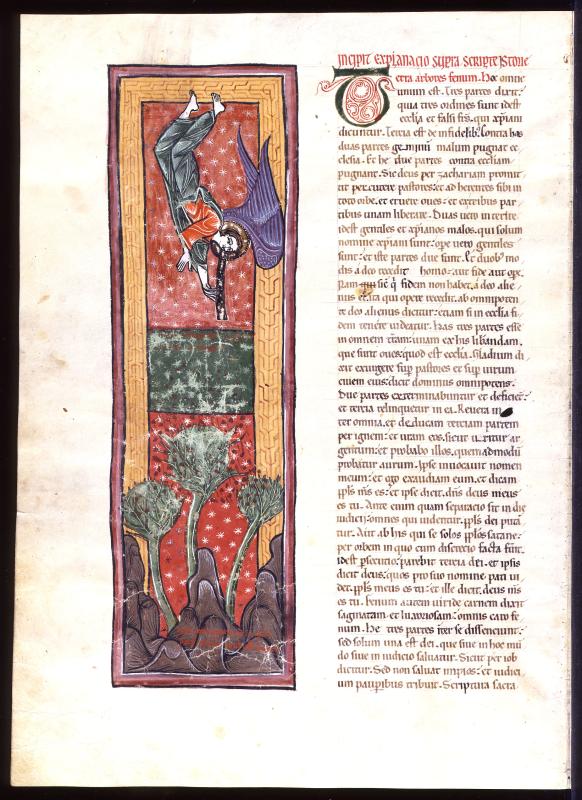 Incipit explanacio supra scripte istorie
Tercia arbores fenum. Hoc omne
unum est. Tres partes dixit:
quia tres ordines sunt idest
ecclia et falsi frs. qui xpiani
dicuntur. Tercia est de infidelib;. Contra has
duas partes gemini malum pugnat ec
clesia. Et he due partes contra eccliam
pugnant. Sic deus per zachariam promit
tit percutere pastores: et ad herentes sibi in
toto orbe. et eruere oues: et ex tribus par
tibus unam liberare. Duas uero in terire
idest gentiles et xpianos malos. qui solum
nomine xpiani sunt: ope uero gentiles
sunt: et iste partes due sunt. Et duob; mo
dis a deo recedit homo: aut fide aut ope.
Nam sic q fidem non habet, a deo alie
nus est, ita qui opere recedit. ab omnipoten
te deo alienus dicitur: etiam si in ecclia fi
dem tenere uideatur. Has tres partes esse
in omnem terram: unam ex his liberandam.
que sunt oues: quod est ecclia. Gladium di
xit exurgere sup pastores et sup uirum
ciuem eius: dicit dominus omnipotens.
Due partes exterminabuntur et deficient:
et tercia relinquetur in ea. Reuera in
ter omnia. et deducam terciam partem
per ignem: et uram eos. sicut uritur ar
gentum: et probabo illos. quem admodum
probatur aurum. Ipse inuocauit nomen
meum: et ego exaudiam eum. et dicam
ppls ms es: et ipse dicit. dns deus meus
es tu. Ante enim quam separatio sit in die
iudicii: omnes qui uidentur. ppls dei puta
tur. Aut ab his qui se solos pplos satane:
per orbem in quo cum discretio facta fuerit.
idest psecutio: parebit tercia dei. et ipsis
dicit deus: quos pro suo nomine pati ui
det. ppls meus es tu: et ille dicit. deus ms
es tu. Fenum autem uiride carnem dixit
saginatam et luxuriosam: omnis caro fe
num. He tres partes inter se differciunt:
sed solum una est dei. que siue in hoc mun
do siue in iudicio saluatur. Sicut per iob
dicitur. Sed non saluat impios: et iudici
um pauperibus tribuit. Scriptura sacra